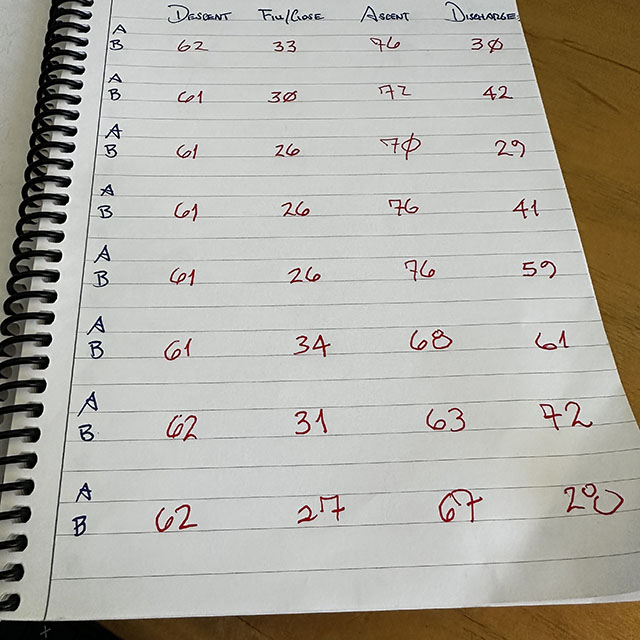 DESCENT FILL/CLOSE ASCENT DISCHARGE
A
B 62 33 76 30
A
B 61 30 72 42
A
B 61 26 70 29
A
B 61 26 76 41
A
B 61 26 76 59
A
B 61 34 68 61
A
B 62 31 63 72
A
B 62 27 67